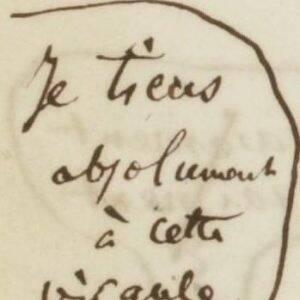 Je tiens
absolument
à cette
virgule